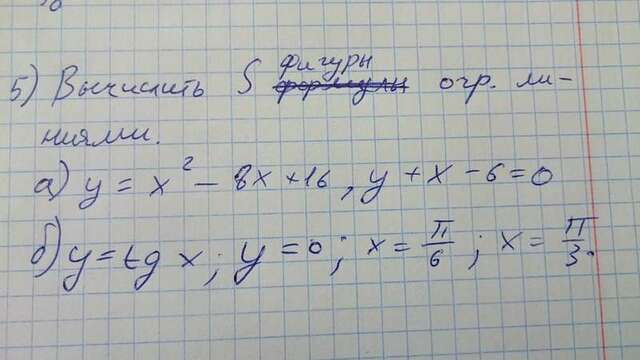 5) Вычислить S фигуры огр. ли-
ниями.
а) y = x² - 8x + 16, y + x - 6 = 0
б) y = tg x; y = 0; x = π/6; x = π/3.